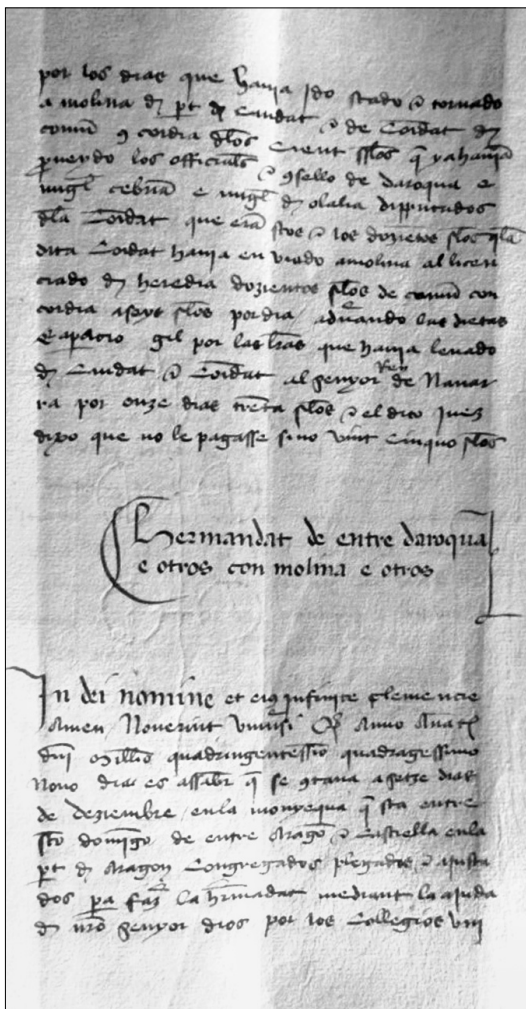 por los dias que hauia ido stado e tornado
a molina de pt de Ciudat e de Co͞idat de
comũ 9cordia dlos Cient sslos q̃ ya hauiã
proueydo los officials e 9sello de daroqua e
migl̃ cebriã e migl̃ d olalia dipputados
dla Co͞idat que erã stos e los dozietos sslos q̃ la
dita Co͞idat hauia enviado a molina al licen
ciado d heredia dozientos sslos de comũ con
cordia a seys sslos por dia aduando las dietas
E aparicio gil por las lr̃as que hauia leuado
d Ciudat e Co͞idat al senyor Rey de Nauar
ra por onze dias tr̃enta sslos e el dito Juez
dixo que no le pagasse sino vint cinquo sslos
Hermandat de entre daroqua
e otros con molina e otros
In dei nomine et eius infinite clemencie
Amen Nouerint vniusi Qd Anno Anatj
dnj Millio quadringentessio quadragessimo
Nono dia es assabr q̃ se 9taua a setze dias
de deziembre en la monyequa q̃ sta entre
sto domĩgo de entre Aragõ e Castiella en la
pt d Aragon Congregados plegados e ajusta
dos pa faz la hr̃madat mediant la ajuda
d nr̃o senyor dios por los Collegios vni